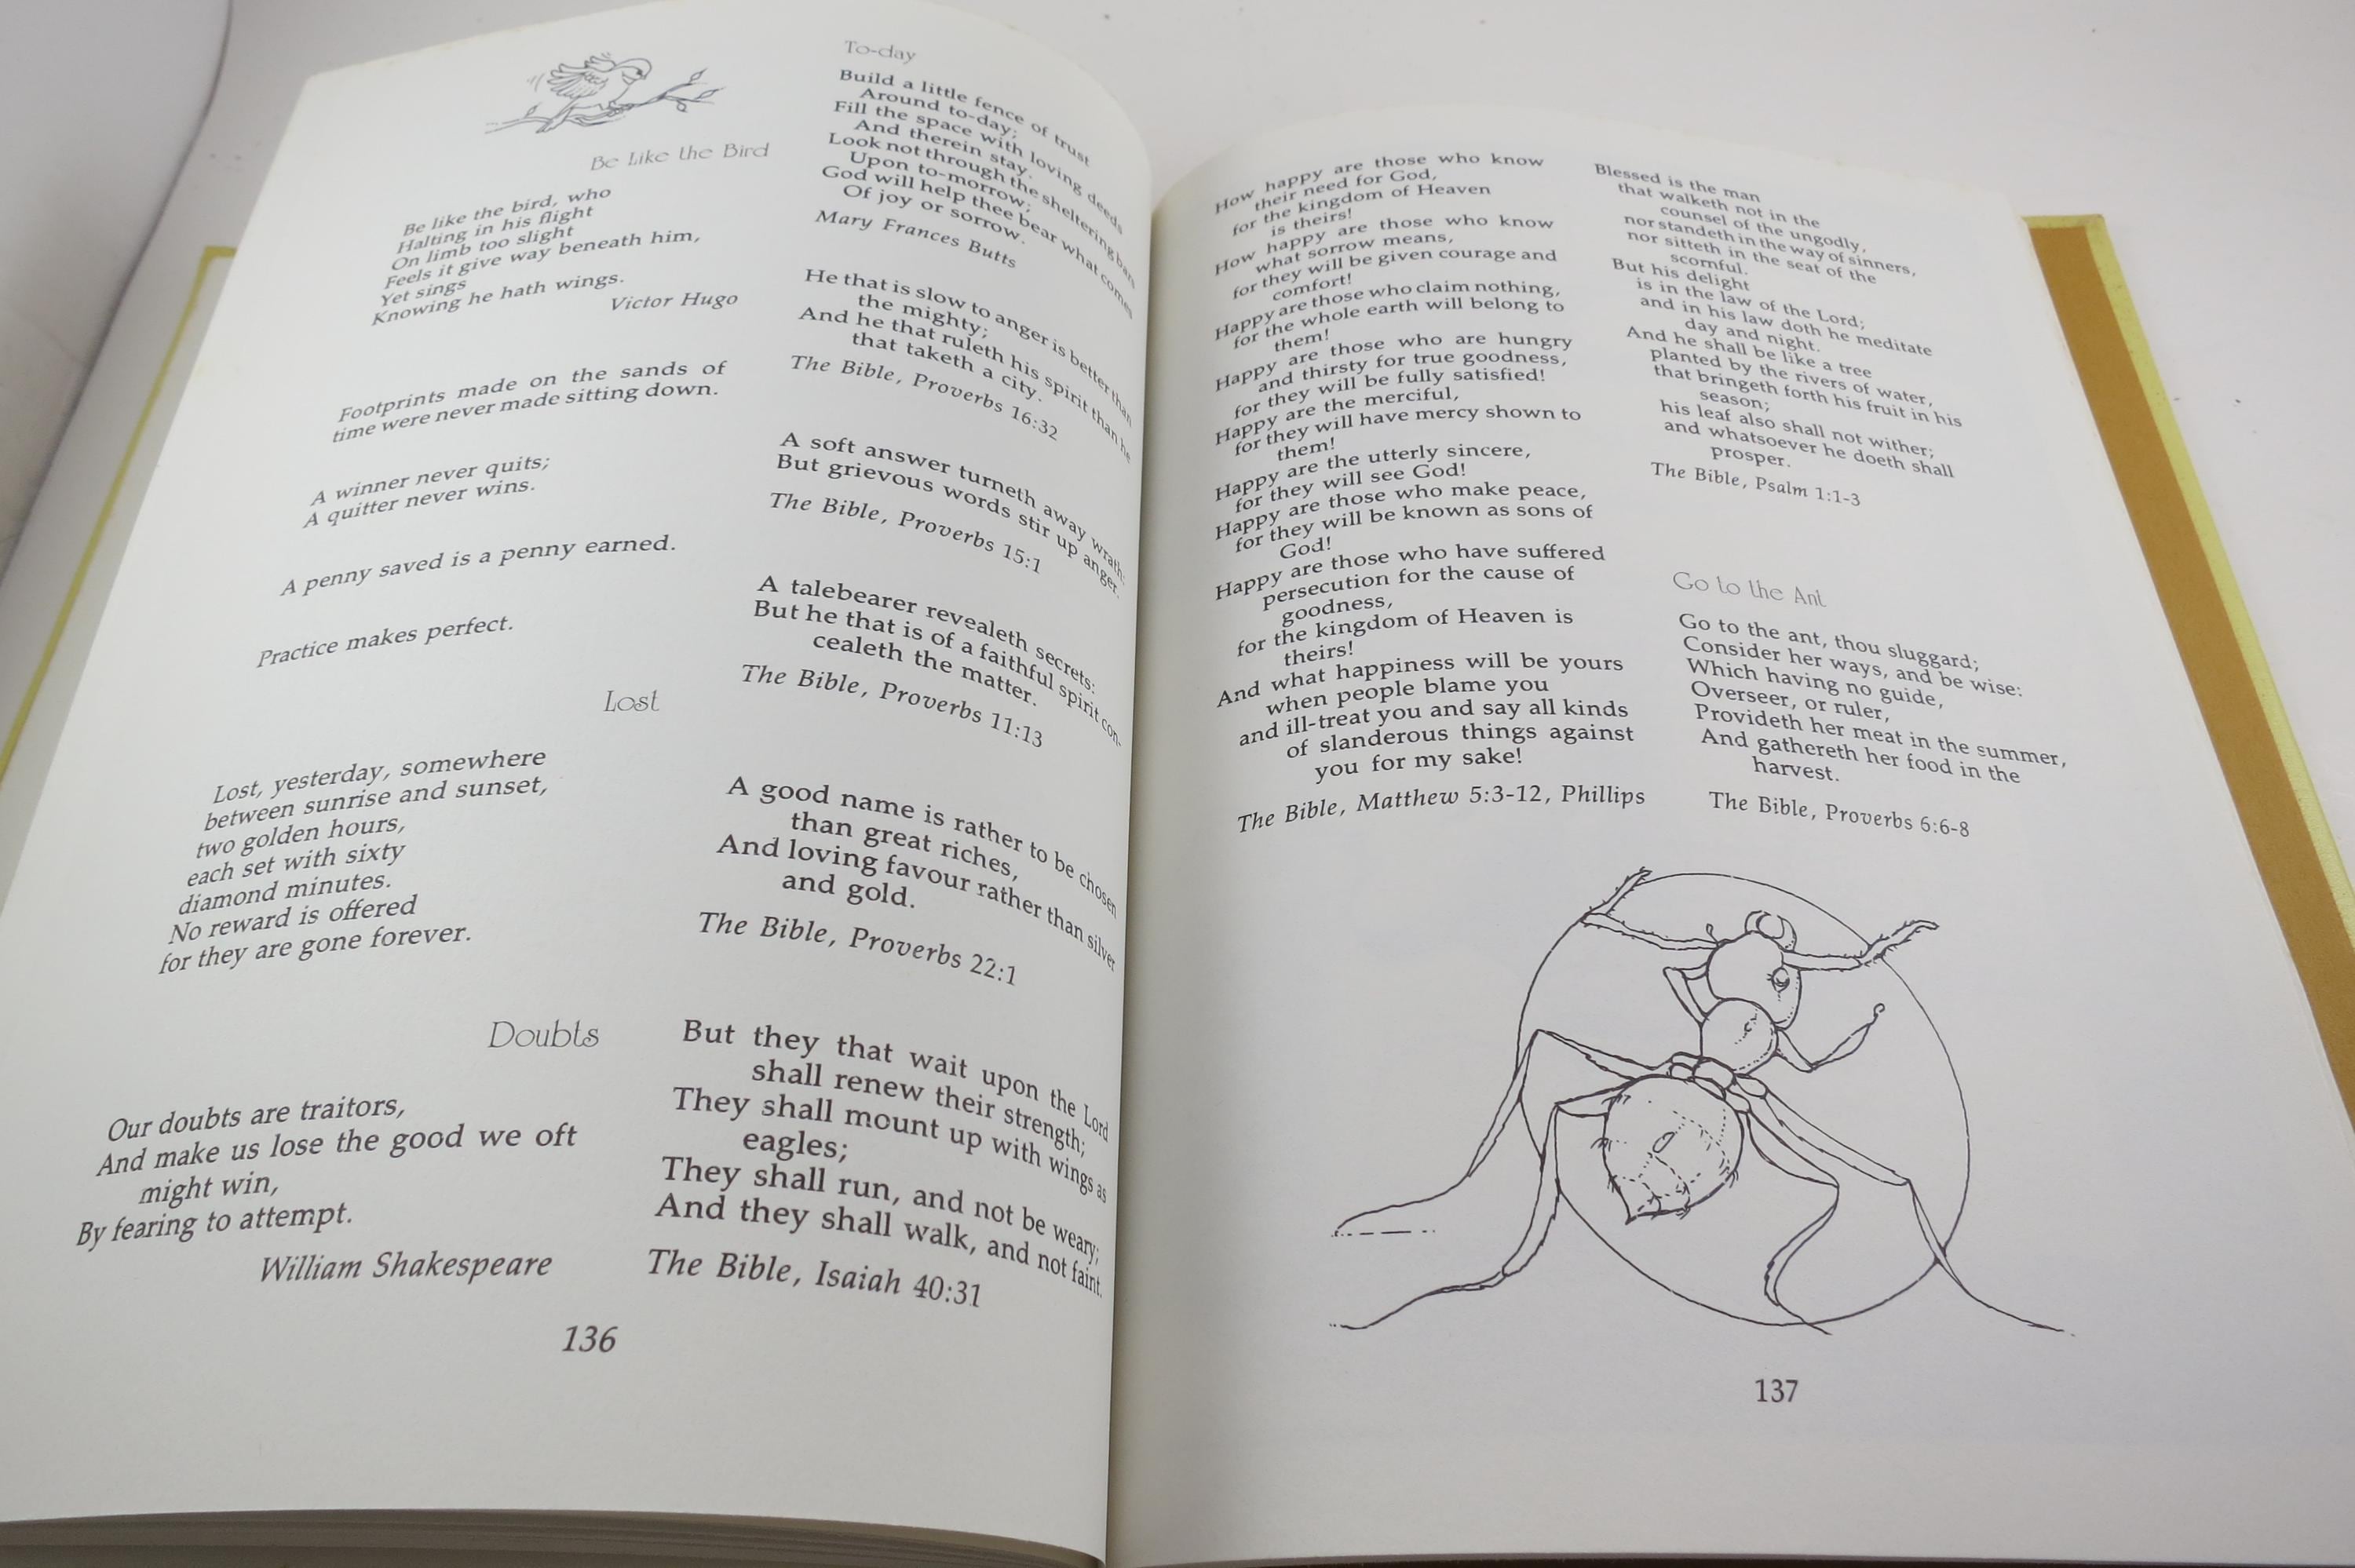 Be Like the Bird
Be like the bird, who
Halting in his flight
On limb too slight
Feels it give way beneath him,
Yet sings
Knowing he hath wings.
Victor Hugo
Footprints made on the sands of
time were never made sitting down.
A winner never quits;
A quitter never wins.
A penny saved is a penny earned.
Practice makes perfect.
Lost
Lost, yesterday, somewhere
between sunrise and sunset,
two golden hours,
each set with sixty
diamond minutes.
No reward is offered
for they are gone forever.
Doubts
Our doubts are traitors,
And make us lose the good we oft
might win,
By fearing to attempt.
William Shakespeare
To-day
Build a little fence of trust
Around to-day;
Fill the space with loving deeds
And therein stay.
Look not through the sheltering bars
Upon to-morrow;
God will help thee bear what comes
Of joy or sorrow.
Mary Frances Butts
He that is slow to anger is better than
the mighty;
And he that ruleth his spirit than he
that taketh a city.
The Bible, Proverbs 16:32
A soft answer turneth away wrath:
But grievous words stir up anger.
The Bible, Proverbs 15:1
A talebearer revealeth secrets:
But he that is of a faithful spirit con-
cealeth the matter.
The Bible, Proverbs 11:13
A good name is rather to be chosen
than great riches,
And loving favour rather than silver
and gold.
The Bible, Proverbs 22:1
But they that wait upon the Lord
shall renew their strength;
They shall mount up with wings as
eagles;
They shall run, and not be weary;
And they shall walk, and not faint.
The Bible, Isaiah 40:31
136
How happy are those who know
their need for God,
for the kingdom of Heaven
is theirs!
How happy are those who know
what sorrow means,
for they will be given courage and
comfort!
Happy are those who claim nothing,
for the whole earth will belong to
them!
Happy are those who are hungry
and thirsty for true goodness,
for they will be fully satisfied!
Happy are the merciful,
for they will have mercy shown to
them!
Happy are the utterly sincere,
for they will see God!
Happy are those who make peace,
for they will be known as sons of
God!
Happy are those who have suffered
persecution for the cause of
goodness,
for the kingdom of Heaven is
theirs!
And what happiness will be yours
when people blame you
and ill-treat you and say all kinds
of slanderous things against
you for my sake!
The Bible, Matthew 5:3-12, Phillips
Blessed is the man
that walketh not in the
counsel of the ungodly,
nor standeth in the way of sinners,
nor sitteth in the seat of the
scornful.
But his delight
is in the law of the Lord;
and in his law doth he meditate
day and night.
And he shall be like a tree
planted by the rivers of water,
that bringeth forth his fruit in his
season;
his leaf also shall not wither;
and whatsoever he doeth shall
prosper.
The Bible, Psalm 1:1-3
Go to the Ant
Go to the ant, thou sluggard;
Consider her ways, and be wise:
Which having no guide,
Overseer, or ruler,
Provideth her meat in the summer,
And gathereth her food in the
harvest.
The Bible, Proverbs 6:6-8
137